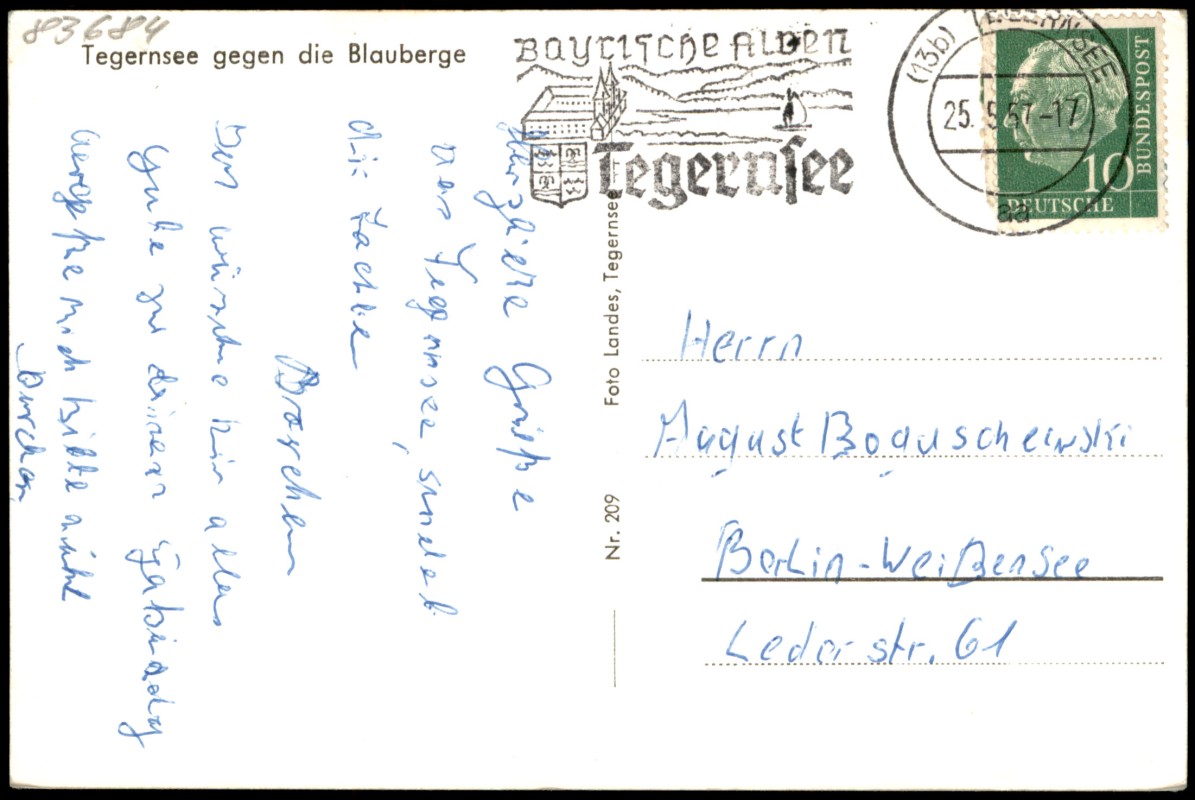 83684
Tegernsee gegen die Blauberge
Bayrische Alpen
Tegernsee
(13b) TEGERNSEE
25.9.57-17
aa
10
DEUTSCHE
BUNDESPOST
Herzliche Grüße
vom Tegernsee, sendet
die
Dorchen
Dir wünsche ich alles
Gute zu deinem
vergiß mich bitte nicht
Dorchen
Foto Landes, Tegernsee
Nr. 209
Herrn
August Boguschewski
Berlin-Weißensee
Lederstr. 61